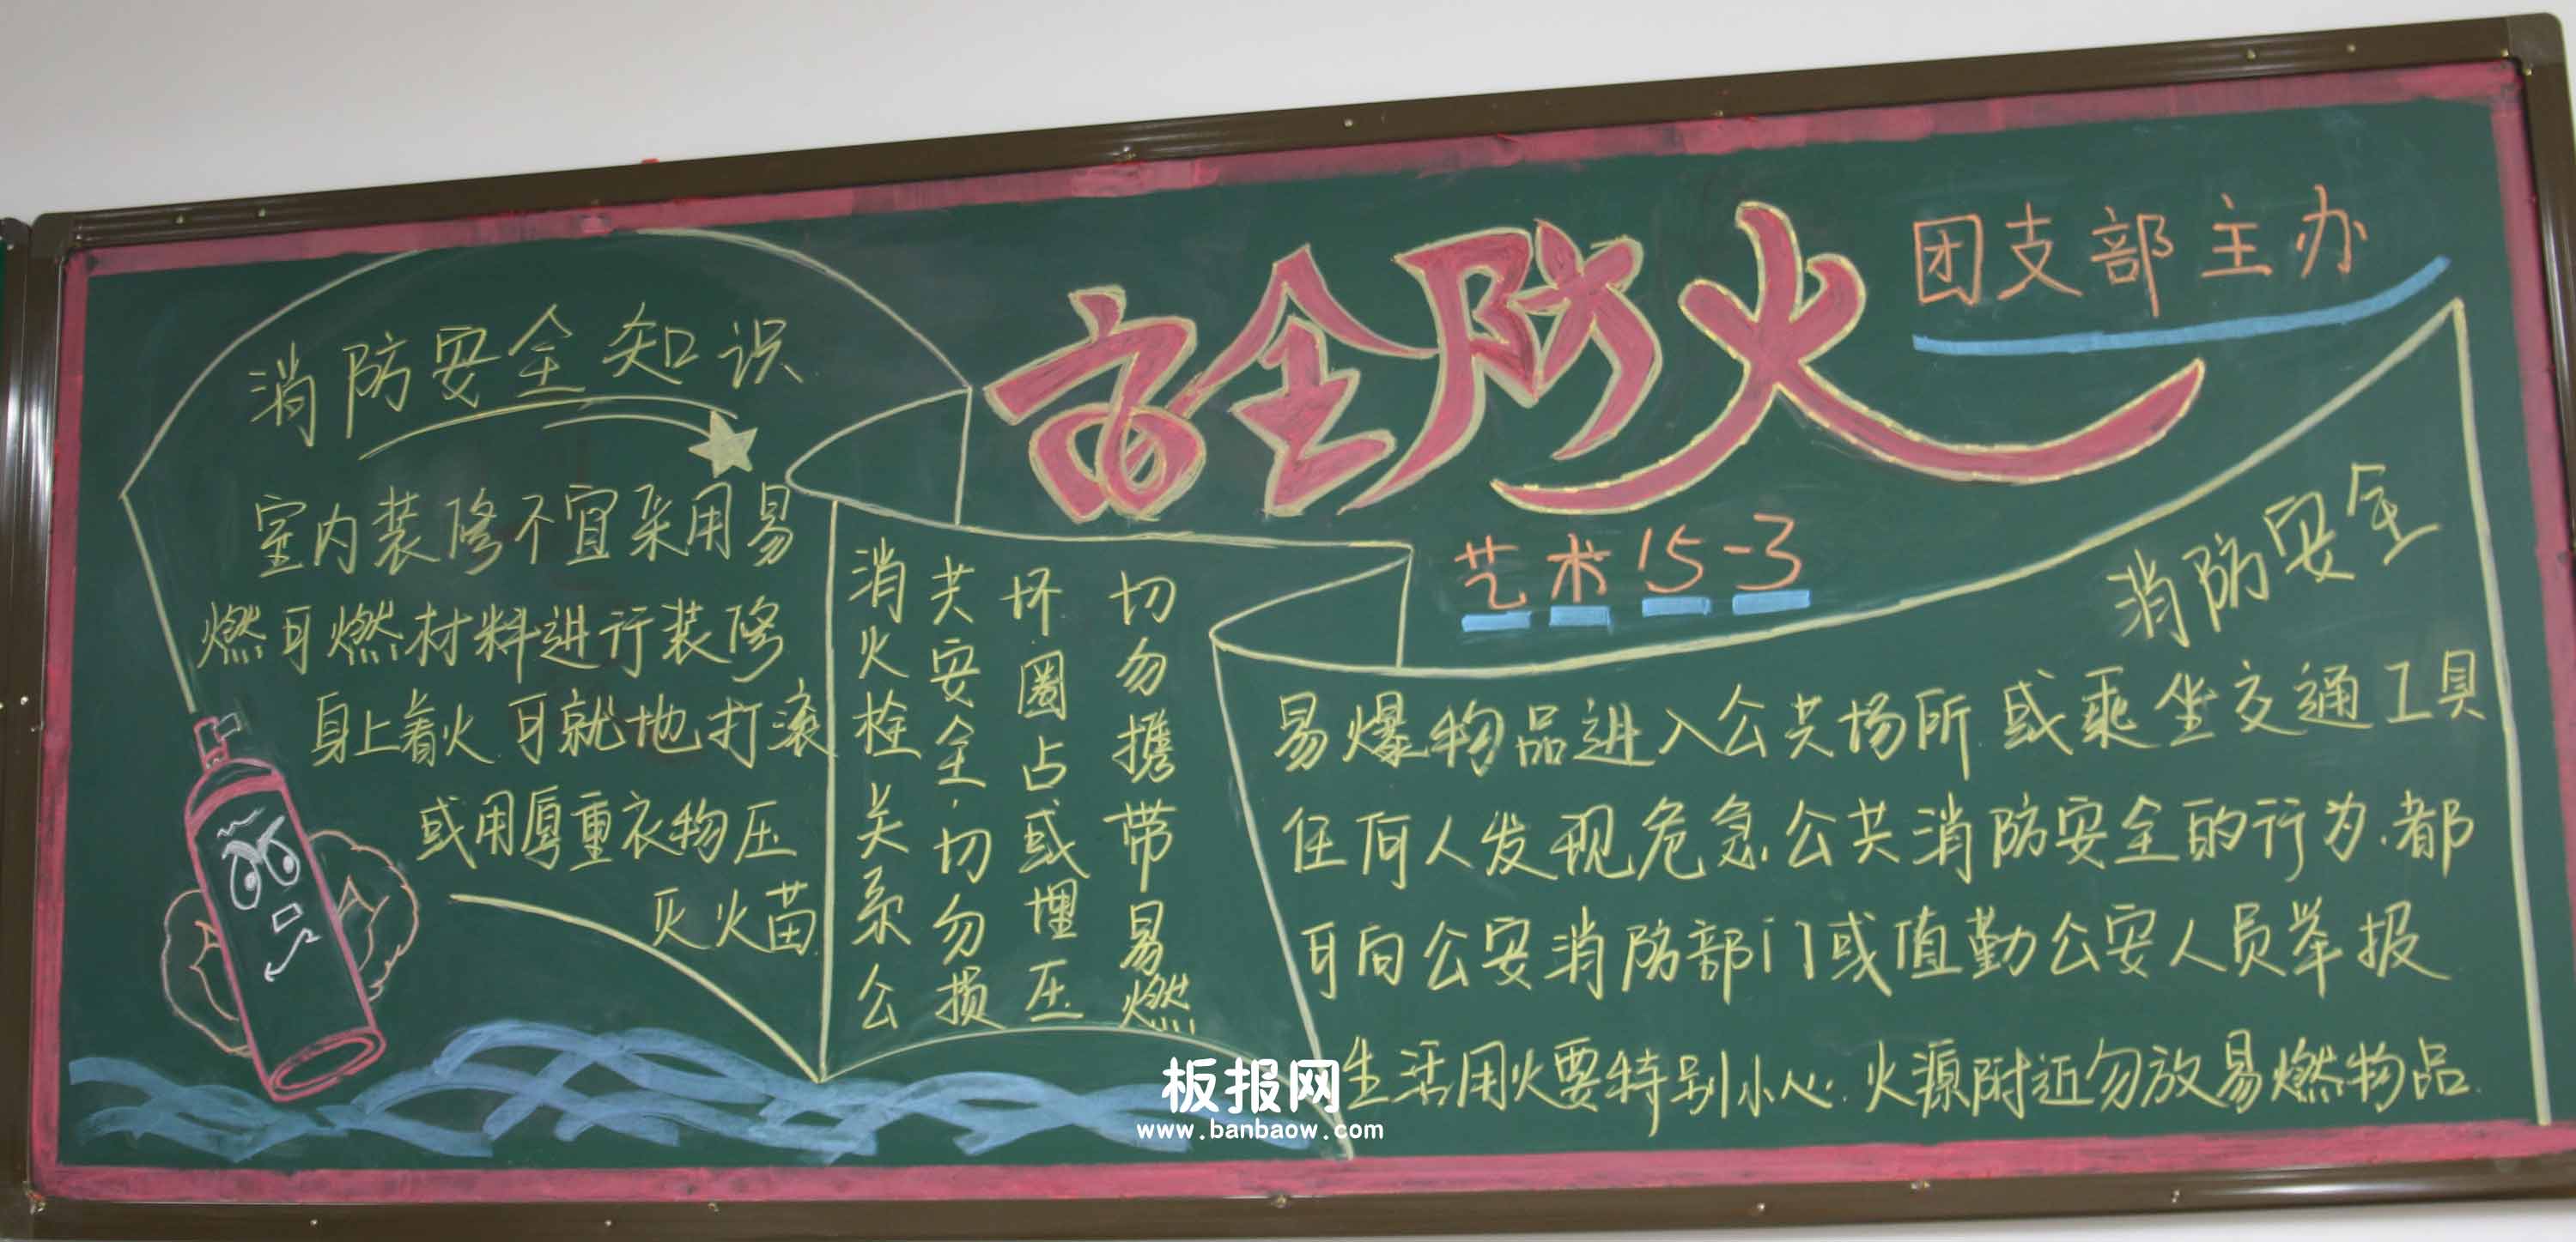 安全防火
团支部主办
艺术15-3
消防安全知识
室内装修不宜采用易
燃可燃材料进行装修
身上着火.可就地打滚
或用厚重衣物压
灭火苗
消火栓关系公
共安全.切勿损
坏圈占或埋压
切勿携带易燃
消防安全
易爆物品进入公共场所.或乘坐交通工具
任何人发现危急公共消防安全的行为.都
可向公安消防部门或值勤公安人员举报
生活用火要特别小心.火源附近勿放易燃物品.
板报网
www.banbaow.com